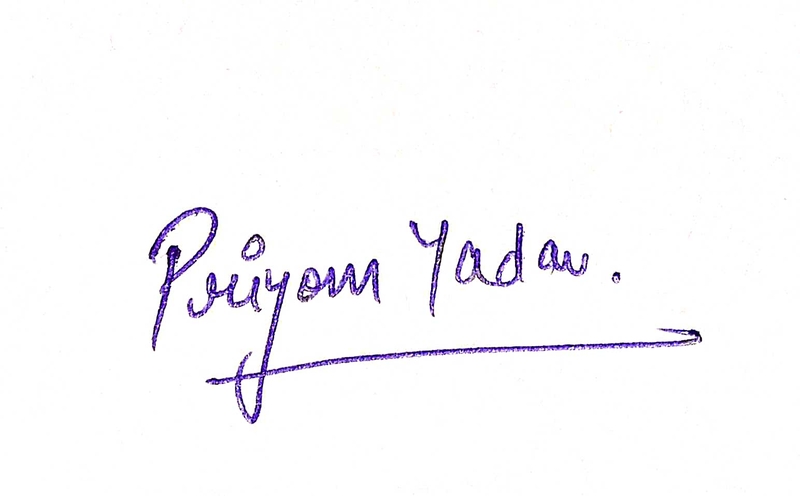 Priyom Yadav.